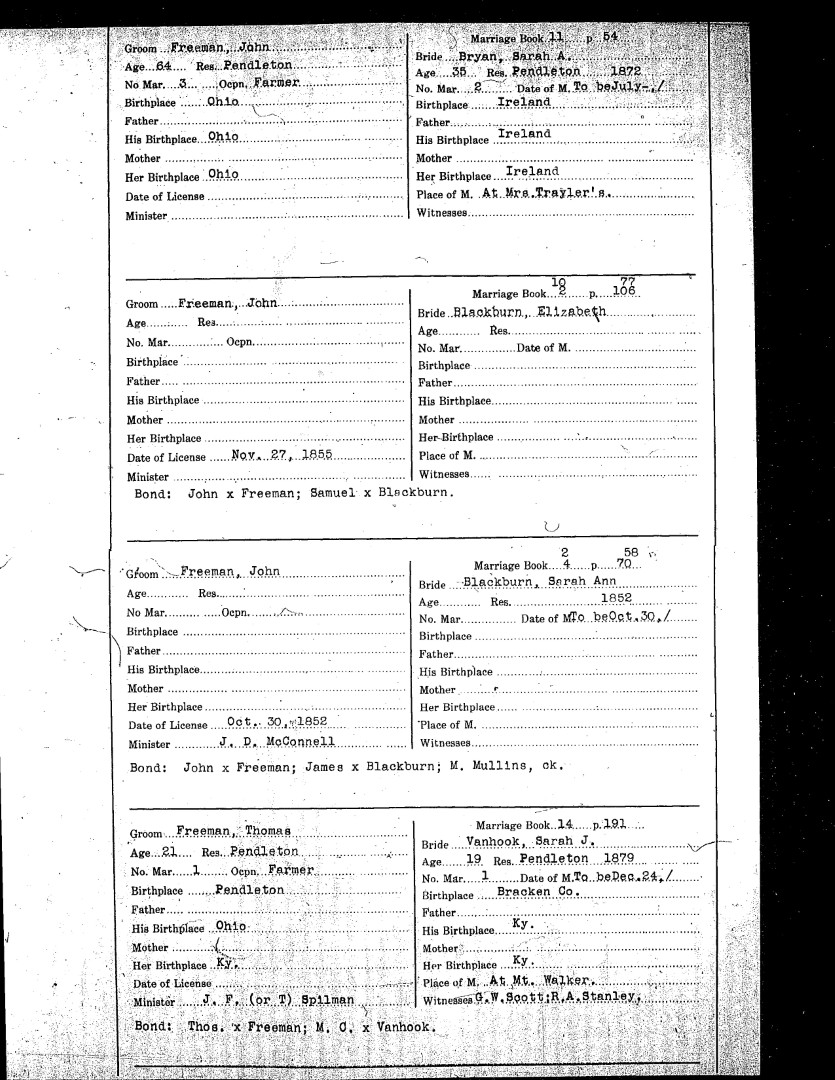 Marriage Book 11 p 54
Groom Freeman, John
Bride Bryan, Sarah A.
Age 64 Res. Pendleton
Age 35 Res. Pendleton 1872
No Mar. 3 Ocpn. Farmer
No. Mar. 2 Date of M. To beJuly-,/
Birthplace Ohio
Birthplace Ireland
Father
Father
His Birthplace Ohio
His Birthplace Ireland
Mother
Mother
Her Birthplace Ohio
Her Birthplace Ireland
Date of License
Place of M. At Mrs.Trayler's.
Minister
Witnesses
10 77
Marriage Book 2 p. 106
Groom Freeman, John
Bride Blackburn, Elizabeth
Age Res.
Age Res.
No. Mar. Ocpn.
No. Mar. Date of M.
Birthplace
Birthplace
Father
Father
His Birthplace
His Birthplace
Mother
Mother
Her Birthplace
Her Birthplace
Date of License Nov. 27, 1855
Place of M.
Minister
Witnesses
Bond: John x Freeman; Samuel x Blackburn.
2 58
Marriage Book 4 p. 70
Groom Freeman, John
Bride Blackburn, Sarah Ann
Age Res.
Age Res. 1852
No Mar. Ocpn.
No. Mar. Date of M. To beOct.30,/
Birthplace
Birthplace
Father
Father
His Birthplace
His Birthplace
Mother
Mother
Her Birthplace
Her Birthplace
Date of License Oct. 30, 1852
Place of M.
Minister J. D. McConnell
Witnesses
Bond: John x Freeman; James x Blackburn; M. Mullins, ck.
Marriage Book 14 p. 191
Groom Freeman, Thomas
Bride Vanhook, Sarah J.
Age 21 Res. Pendleton
Age 19 Res. Pendleton 1879
No. Mar. 1 Ocpn. Farmer
No. Mar. 1 Date of M. To beDec.24,/
Birthplace Pendleton
Birthplace Bracken Co.
Father
Father
His Birthplace Ohio
His Birthplace Ky.
Mother
Mother
Her Birthplace Ky.
Her Birthplace Ky.
Date of License
Place of M. At Mt. Walker.
Minister J. F. (or T) Spilman
Witnesses G.W.Scott;R.A.Stanley.
Bond: Thos. x Freeman; M. C. x Vanhook.